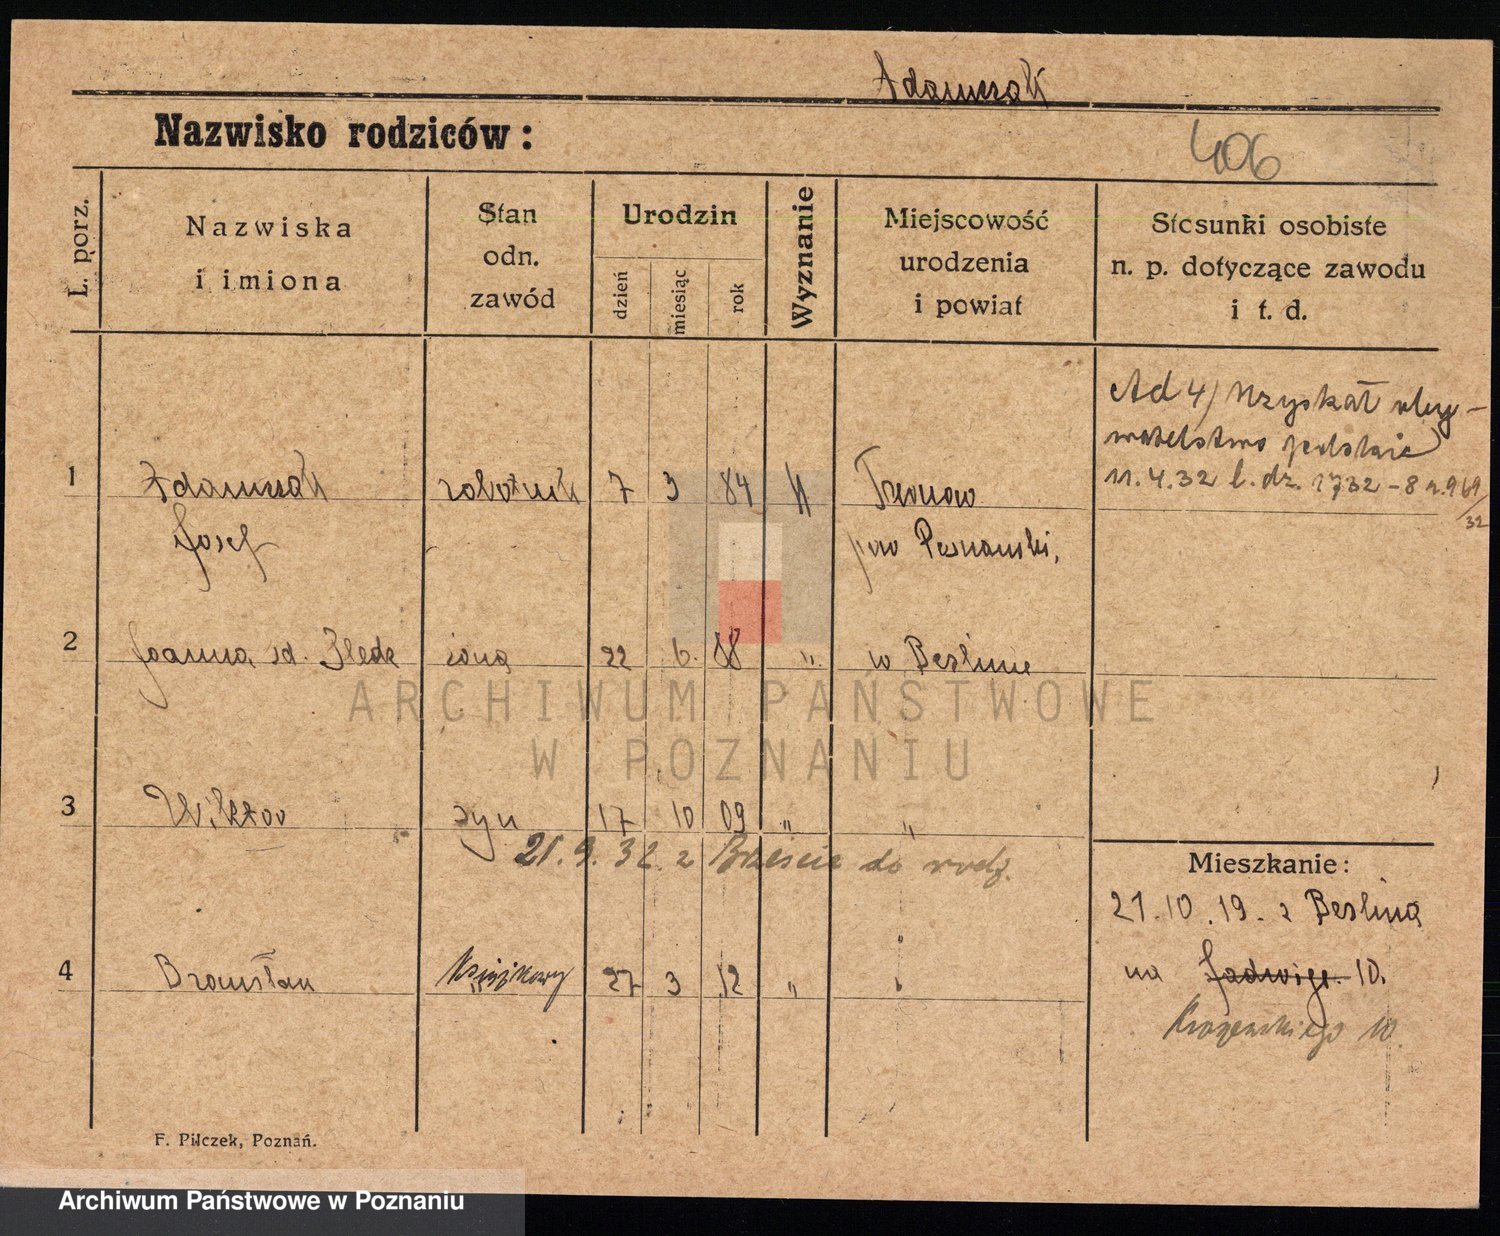 Adamczak
Nazwisko rodziców:
406
L. porz.
Nazwiska
i imiona
Stan
odn.
zawód
Urodzin
dzień
miesiąc
rok
Wyznanie
Miejscowość
urodzenia
i powiat
Stosunki osobiste
n. p. dotyczące zawodu
i t. d.
Ad 4/ Uzyskał oby-
watelstwo polskie
11.4.32 l. dz. 1732-8
32
1 Adamczak robotnik 7 3 84
Józef pow Poznański,
2 Joanna żona 22 6. 88 " w Berlinie
3 Wiktor syn 17 10 09 " "
21.9.32. z do rodz.
Mieszkanie:
21.10.19. z Berlina
4 Bronisław 27 3 12 " "
na Jadwigi 10.
Kraszewskiego 10
F. Pilczek, Poznań.
ARCHIWUM PAŃSTWOWE
W POZNANIU
Archiwum Państwowe w Poznaniu